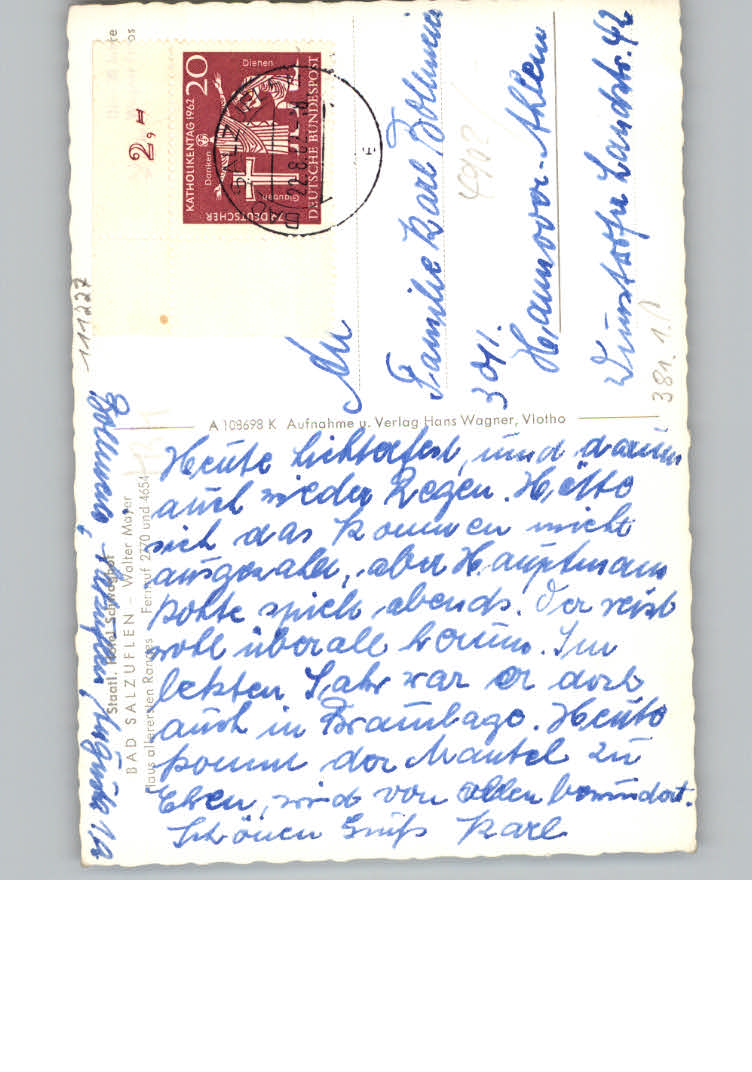 Heute Lichterfest, und darum
auch wieder Regen. Hätte
sich das Kommen nicht
ausgezahlt, aber Hauptmann
spielt abends. Der reist
wohl überall herum. Im
letzten Jahr war er dort
auch in Braunlage. Heute
kommt der Mantel zu
Ehren, wird von allen bewundert.
Schönen Gruß Karl
Staatl. Hotel Schwaghof
BAD SALZUFLEN - Walter Mayer
Haus allerersten Ranges Fernruf 2770 und 4654
A 108698 K Aufnahme u. Verlag Hans Wagner, Vlotho
111227
2,-
20
KATHOLIKENTAG 1962
79. DEUTSCHER
Glauben
Danken
Dienen
DEUTSCHE BUNDESPOST
22.8.62
An
Familie Karl
3011.
Hannover-Ahlem
Wunstorfer Landstr. 42
381.1.